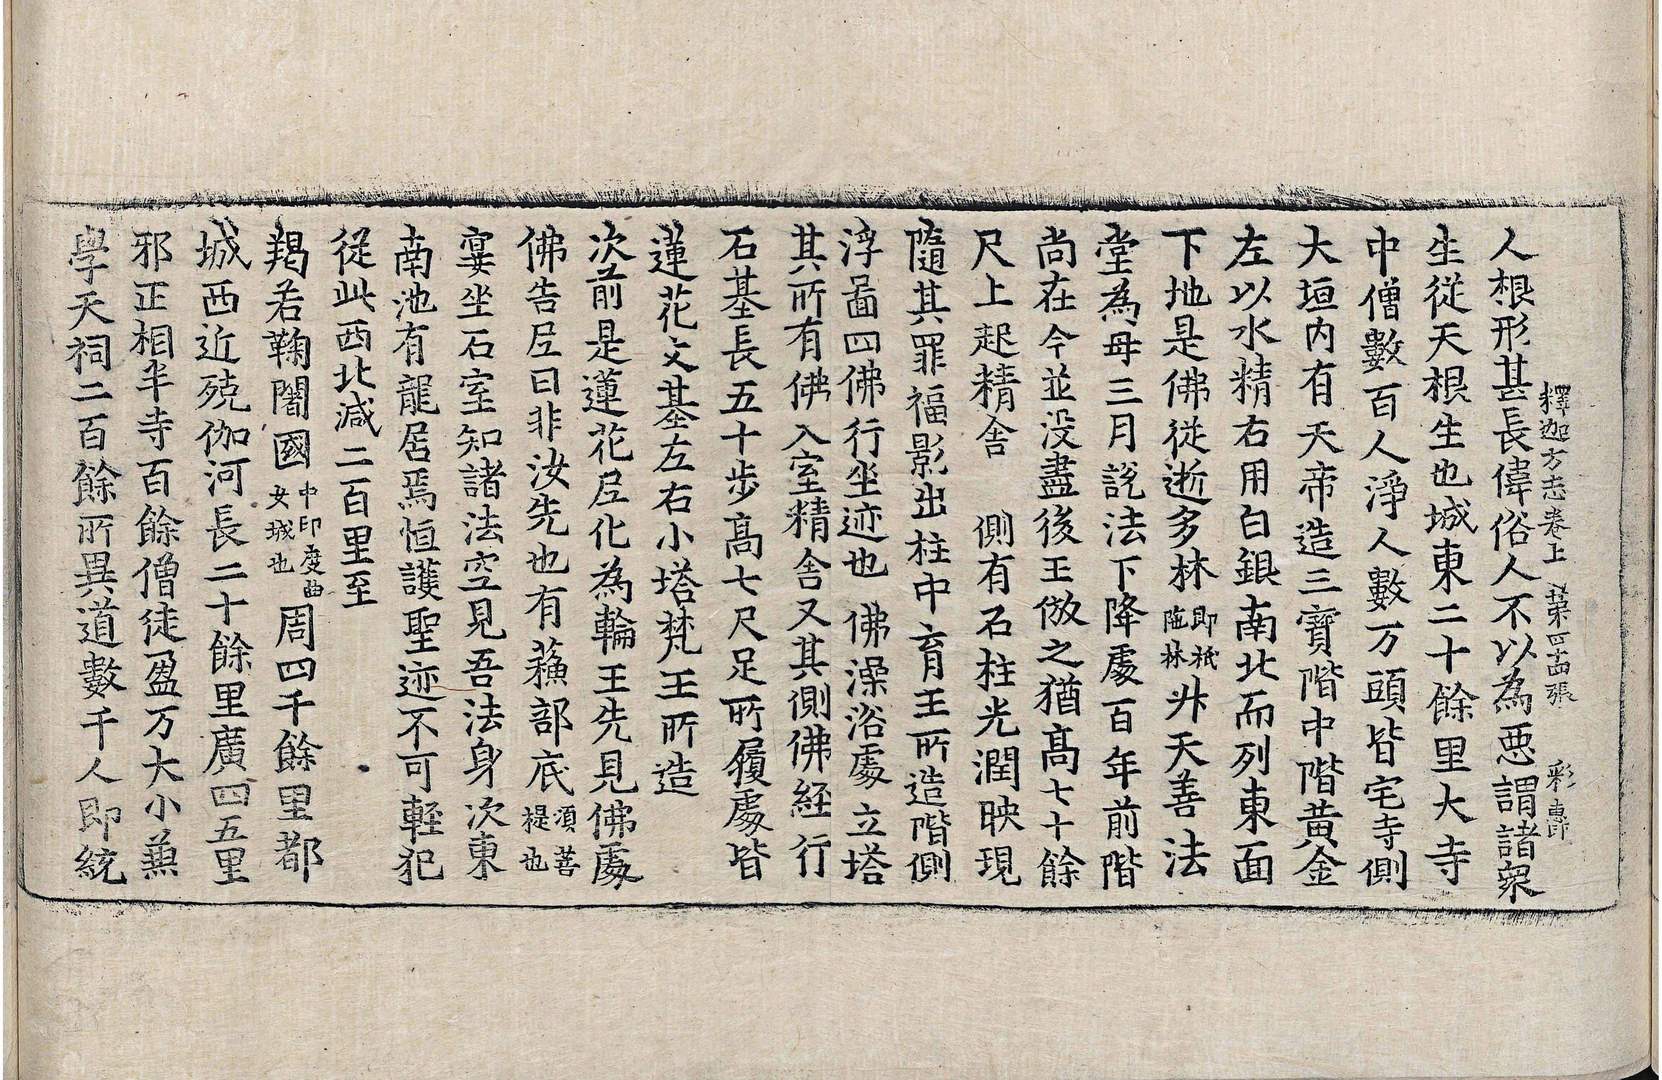 釋迦方志卷上 第四十四張 彩
人根形甚長偉俗人不以為惡謂諸衆
生從天根生也城東二十餘里大寺
中僧數百人淨人數万頭皆宅寺側
大垣内有天帝造三寶階中階黃金
左以水精右用白銀南北而列東面
下地是佛從逝多林即祇陁林升天善法
堂為母三月說法下降處百年前階
尚在今並没盡後王倣之猶高七十餘
尺上起精舍 側有石柱光潤映現
隨其罪福影出柱中育王所造階側
浮圖四佛行坐迹也 佛澡浴處立塔
其所有佛入室精舍又其側佛經行
石基長五十步高七尺足所履處皆
蓮花文基左右小塔梵王所造
次前是蓮花𡰱化為輪王先見佛處
佛告𡰱曰非汝先也有蘓部底須菩提也
宴坐石室知諸法空見吾法身次東
南池有龍居焉恒護聖迹不可輕犯
從此西北減二百里至
羯若鞠闍國中印度曲女城也周四千餘里都
城西近殑伽河長二十餘里廣四五里
邪正相半寺百餘僧徒盈万大小兼
學天祠二百餘所異道數千人即統